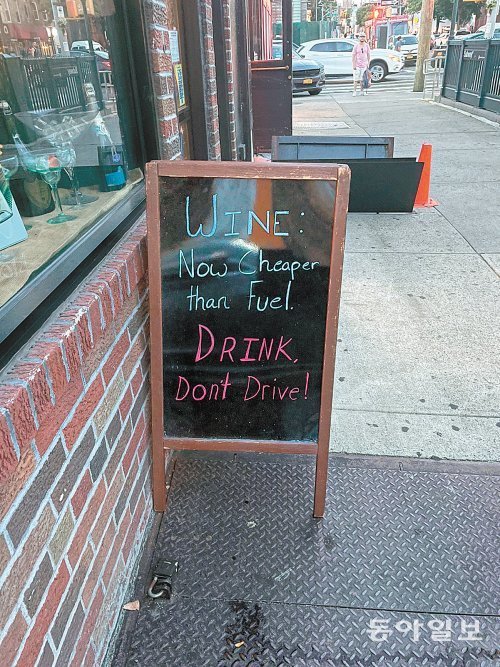 WINE:
Now Cheaper
than Fuel.
DRINK,
Don't Drive!
동아일보